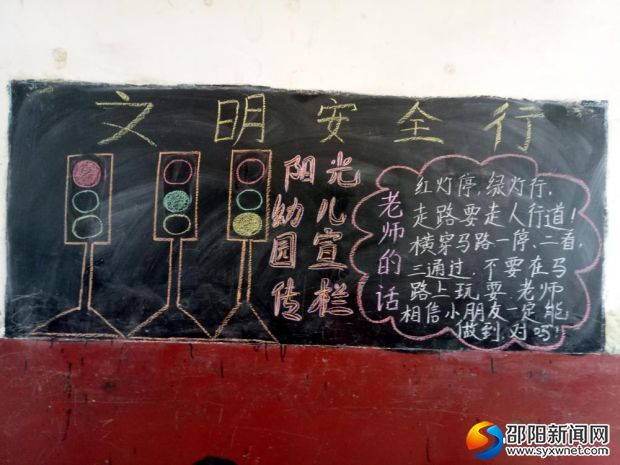 文明安全行
阳光
幼儿
园宣
传栏
老师的话
红灯停,绿灯行,
走路要走人行道!
横穿马路一停、二看,
三通过,不要在马
路上玩耍,老师
相信小朋友一定能
做到,对吗!
邵阳新闻网
www.syxwnet.com